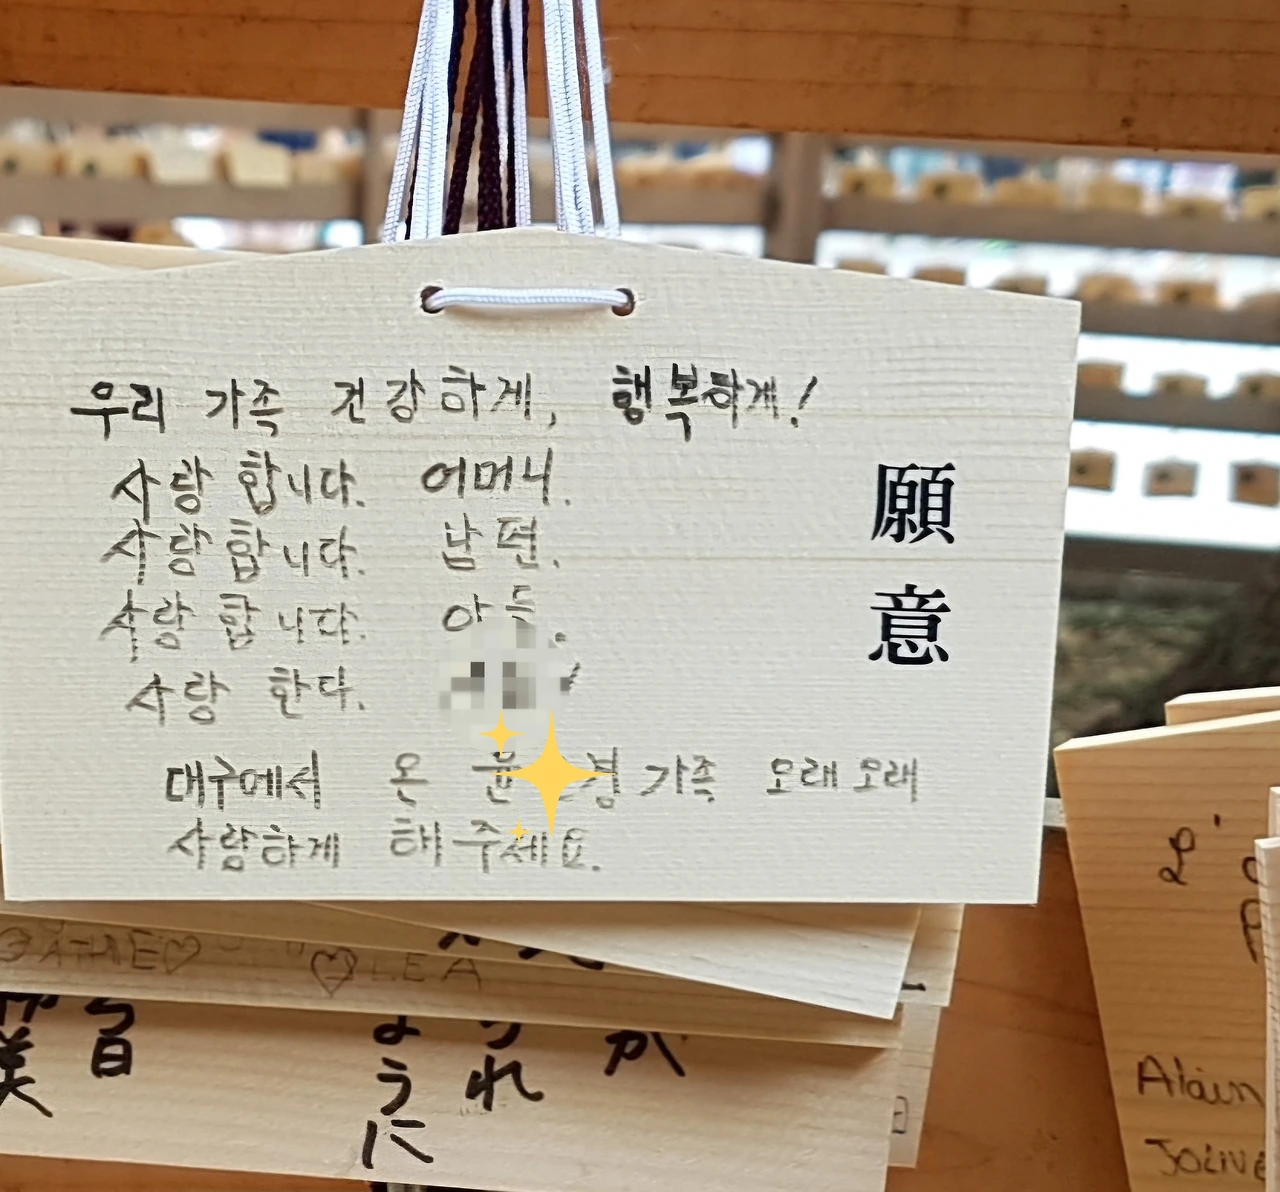 우리 가족 건강하게, 행복하게!
사랑합니다. 어머니.
사랑합니다. 남편.
사랑합니다. 아들.
사랑 한다.
대구에서 온 가족 오래오래
사랑하게 해주세요.
願意
LEA
ように
れ
か
Alain